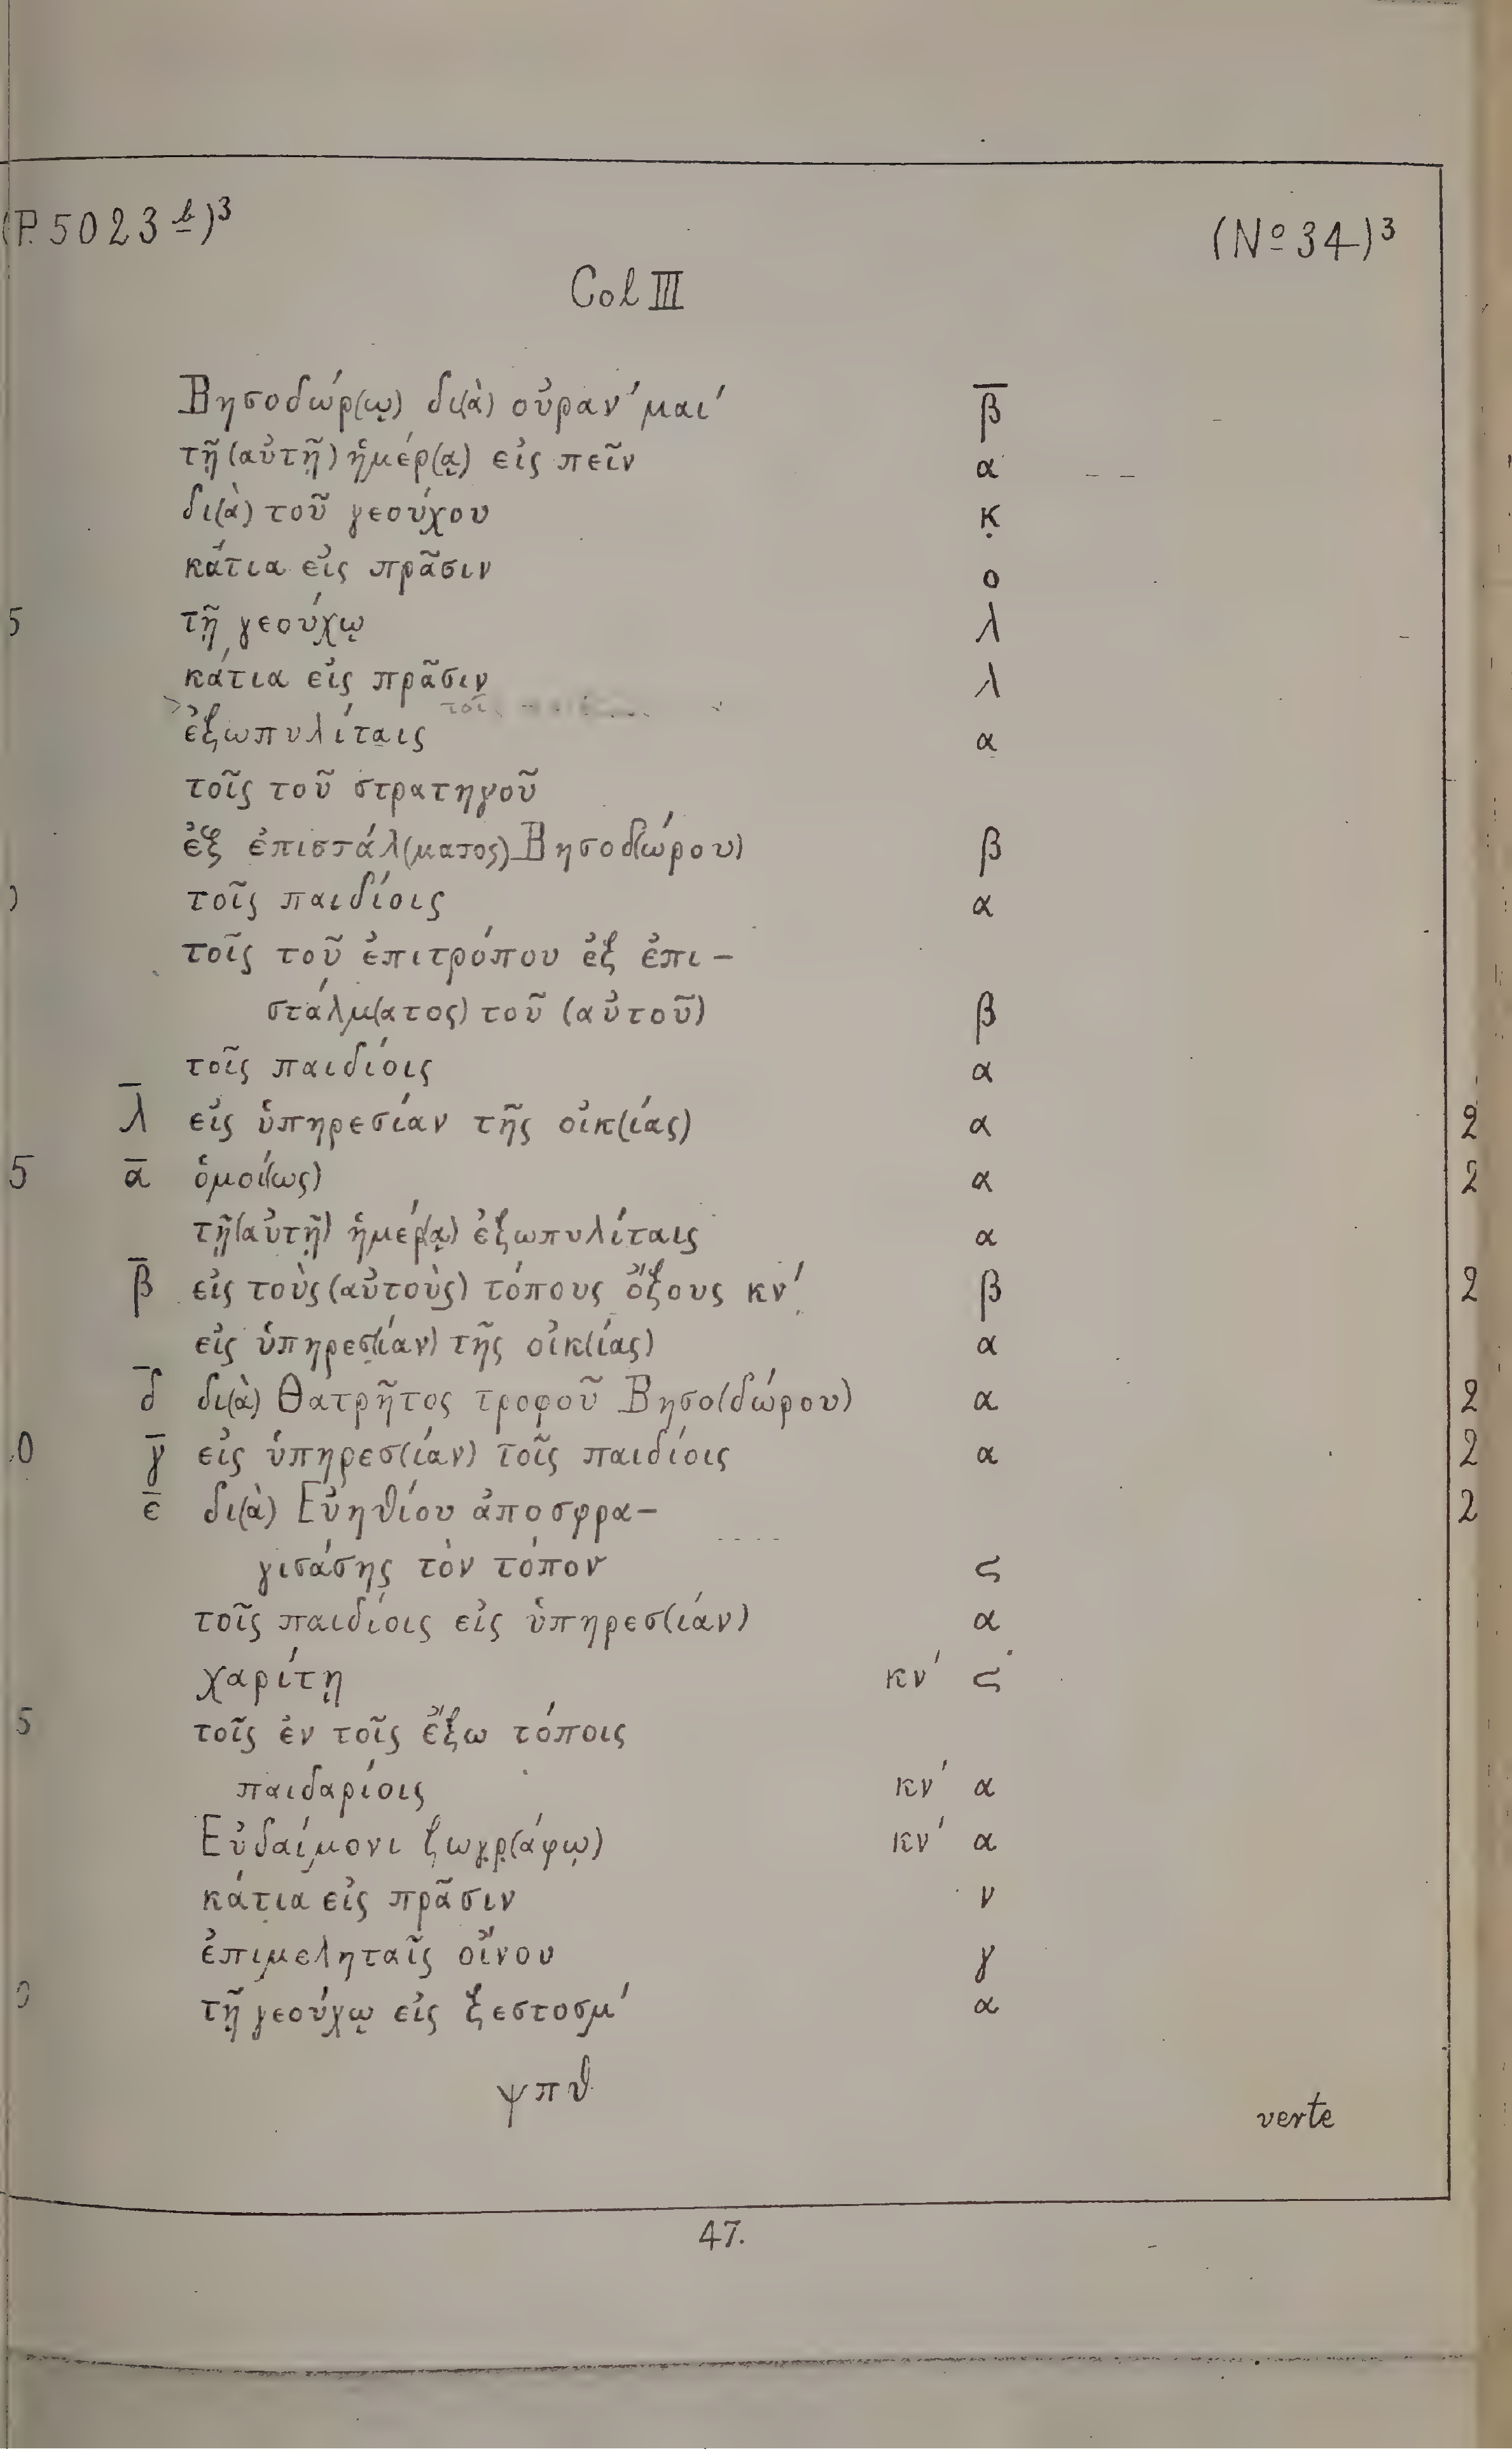 (P. 5023 b)³ (Nº 34)³
Col III
Βησοδώρ(ῳ) δι(ὰ) οὐραν' μαι' β̅
τῇ (αὐτῇ) ἡμέρ(ᾳ) εἰς πεῖν α
δι(ὰ) τοῦ γεούχου κ̣
κάτια εἰς πρᾶσιν ο
5 τῇ γεούχῳ λ
κάτια εἰς πρᾶσιν λ
ἐξωπυλίταις α
τοῖς τοῦ στρατηγοῦ
ἐξ ἐπιστάλ(ματος) Βησοδ(ώρου) β
τοῖς παιδίοις α
τοῖς τοῦ ἐπιτρόπου ἐξ ἐπι-
στάλμ(ατος) τοῦ (αὐτοῦ) β
τοῖς παιδίοις α
λ̅ εἰς ὑπηρεσίαν τῆς οἰκ(ίας) α 2
5 α̅ ὁμοί(ως) α 2
τῇ (αὐτῇ) ἡμέρ(ᾳ) ἐξωπυλίταις α
β̅ εἰς τοὺς (αὐτοὺς) τόπους ὄξους κν' β 2
εἰς ὑπηρεσ(ίαν) τῆς οἰκ(ίας) α
δ̅ δι(ὰ) Θατρῆτος τροφοῦ Βησο(δώρου) α 2
0 γ̅ εἰς ὑπηρεσ(ίαν) τοῖς παιδίοις α 2
ε̅ δι(ὰ) Εὐηθίου ἀποσφρα- 2
γισάσης τὸν τόπον ϛ
τοῖς παιδίοις εἰς ὑπηρεσ(ιάν) α
χαρίτῃ κν' ϛ
5 τοῖς ἐν τοῖς ἔξω τόποις
παιδαρίοις κν' α
Εὐδαίμονι ζωγρ(άφῳ) κν' α
κάτια εἰς πρᾶσιν ν
ἐπιμεληταῖς οἴνου γ
0 τῇ γεούχῳ εἰς ξεστοσμ' α
ψπθ
verte
47.